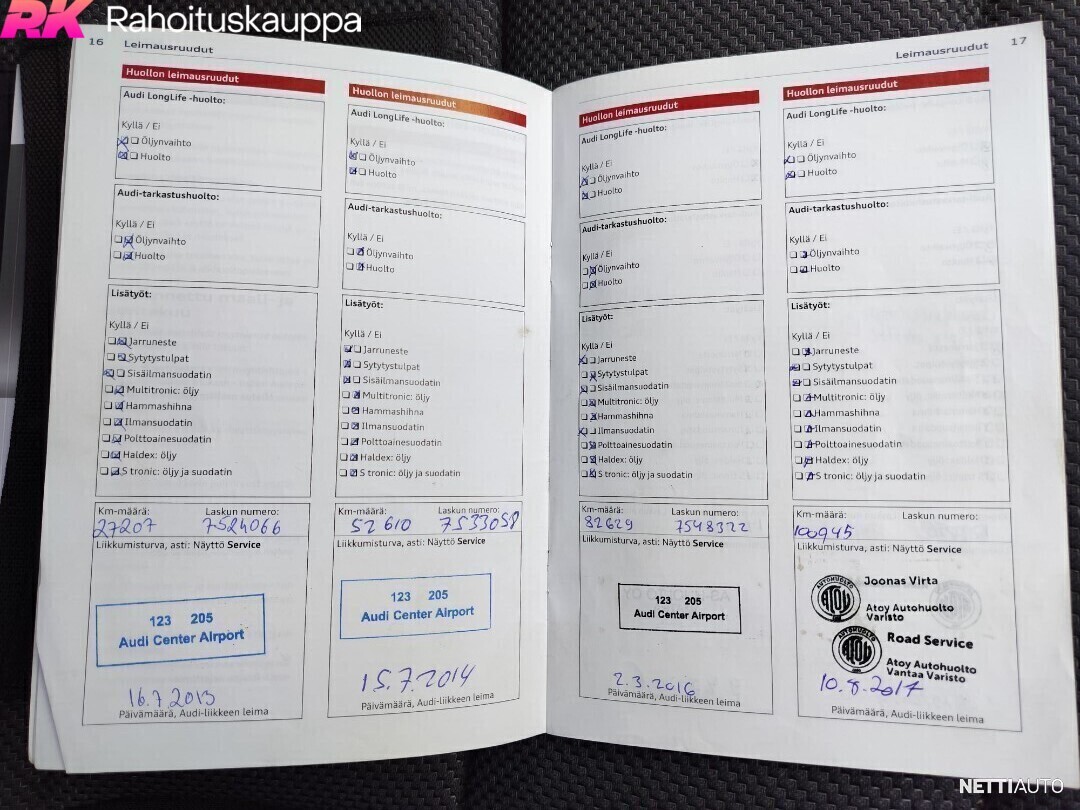 RK Rahoituskauppa
16 Leimausruudut
Huollon leimausruudut
Audi LongLife -huolto:
Kyllä / Ei
Öljynvaihto
Huolto
Audi-tarkastushuolto:
Kyllä / Ei
Öljynvaihto
Huolto
Lisätyöt:
Kyllä / Ei
Jarruneste
Sytytystulpat
Sisäilmansuodatin
Multitronic: öljy
Hammashihna
Ilmansuodatin
Polttoainesuodatin
Haldex: öljy
S tronic: öljy ja suodatin
Km-määrä: Laskun numero:
27207 7524066
Liikkumisturva, asti: Näyttö Service
123 205
Audi Center Airport
16.7.2013
Päivämäärä, Audi-liikkeen leima
Huollon leimausruudut
Audi LongLife -huolto:
Kyllä / Ei
Öljynvaihto
Huolto
Audi-tarkastushuolto:
Kyllä / Ei
Öljynvaihto
Huolto
Lisätyöt:
Kyllä / Ei
Jarruneste
Sytytystulpat
Sisäilmansuodatin
Multitronic: öljy
Hammashihna
Ilmansuodatin
Polttoainesuodatin
Haldex: öljy
S tronic: öljy ja suodatin
Km-määrä: Laskun numero:
52610 7533058
Liikkumisturva, asti: Näyttö Service
123 205
Audi Center Airport
15.7.2014
Päivämäärä, Audi-liikkeen leima
Leimausruudut 17
Huollon leimausruudut
Audi LongLife -huolto:
Kyllä / Ei
Öljynvaihto
Huolto
Audi-tarkastushuolto:
Kyllä / Ei
Öljynvaihto
Huolto
Lisätyöt:
Kyllä / Ei
Jarruneste
Sytytystulpat
Sisäilmansuodatin
Multitronic: öljy
Hammashihna
Ilmansuodatin
Polttoainesuodatin
Haldex: öljy
S tronic: öljy ja suodatin
Km-määrä: Laskun numero:
82629 7548322
Liikkumisturva, asti: Näyttö Service
123 205
Audi Center Airport
2.3.2016
Päivämäärä, Audi-liikkeen leima
Huollon leimausruudut
Audi LongLife -huolto:
Kyllä / Ei
Öljynvaihto
Huolto
Audi-tarkastushuolto:
Kyllä / Ei
Öljynvaihto
Huolto
Lisätyöt:
Kyllä / Ei
Jarruneste
Sytytystulpat
Sisäilmansuodatin
Multitronic: öljy
Hammashihna
Ilmansuodatin
Polttoainesuodatin
Haldex: öljy
S tronic: öljy ja suodatin
Km-määrä: Laskun numero:
100945
Liikkumisturva, asti: Näyttö Service
AUTOHUOLTO
ATOY
Joonas Virta
Atoy Autohuolto
Varisto
AUTOHUOLTO
ATOY
Road Service
Atoy Autohuolto
Vantaa Varisto
10.8.2017
Päivämäärä, Audi-liikkeen leima
NETTIAUTO